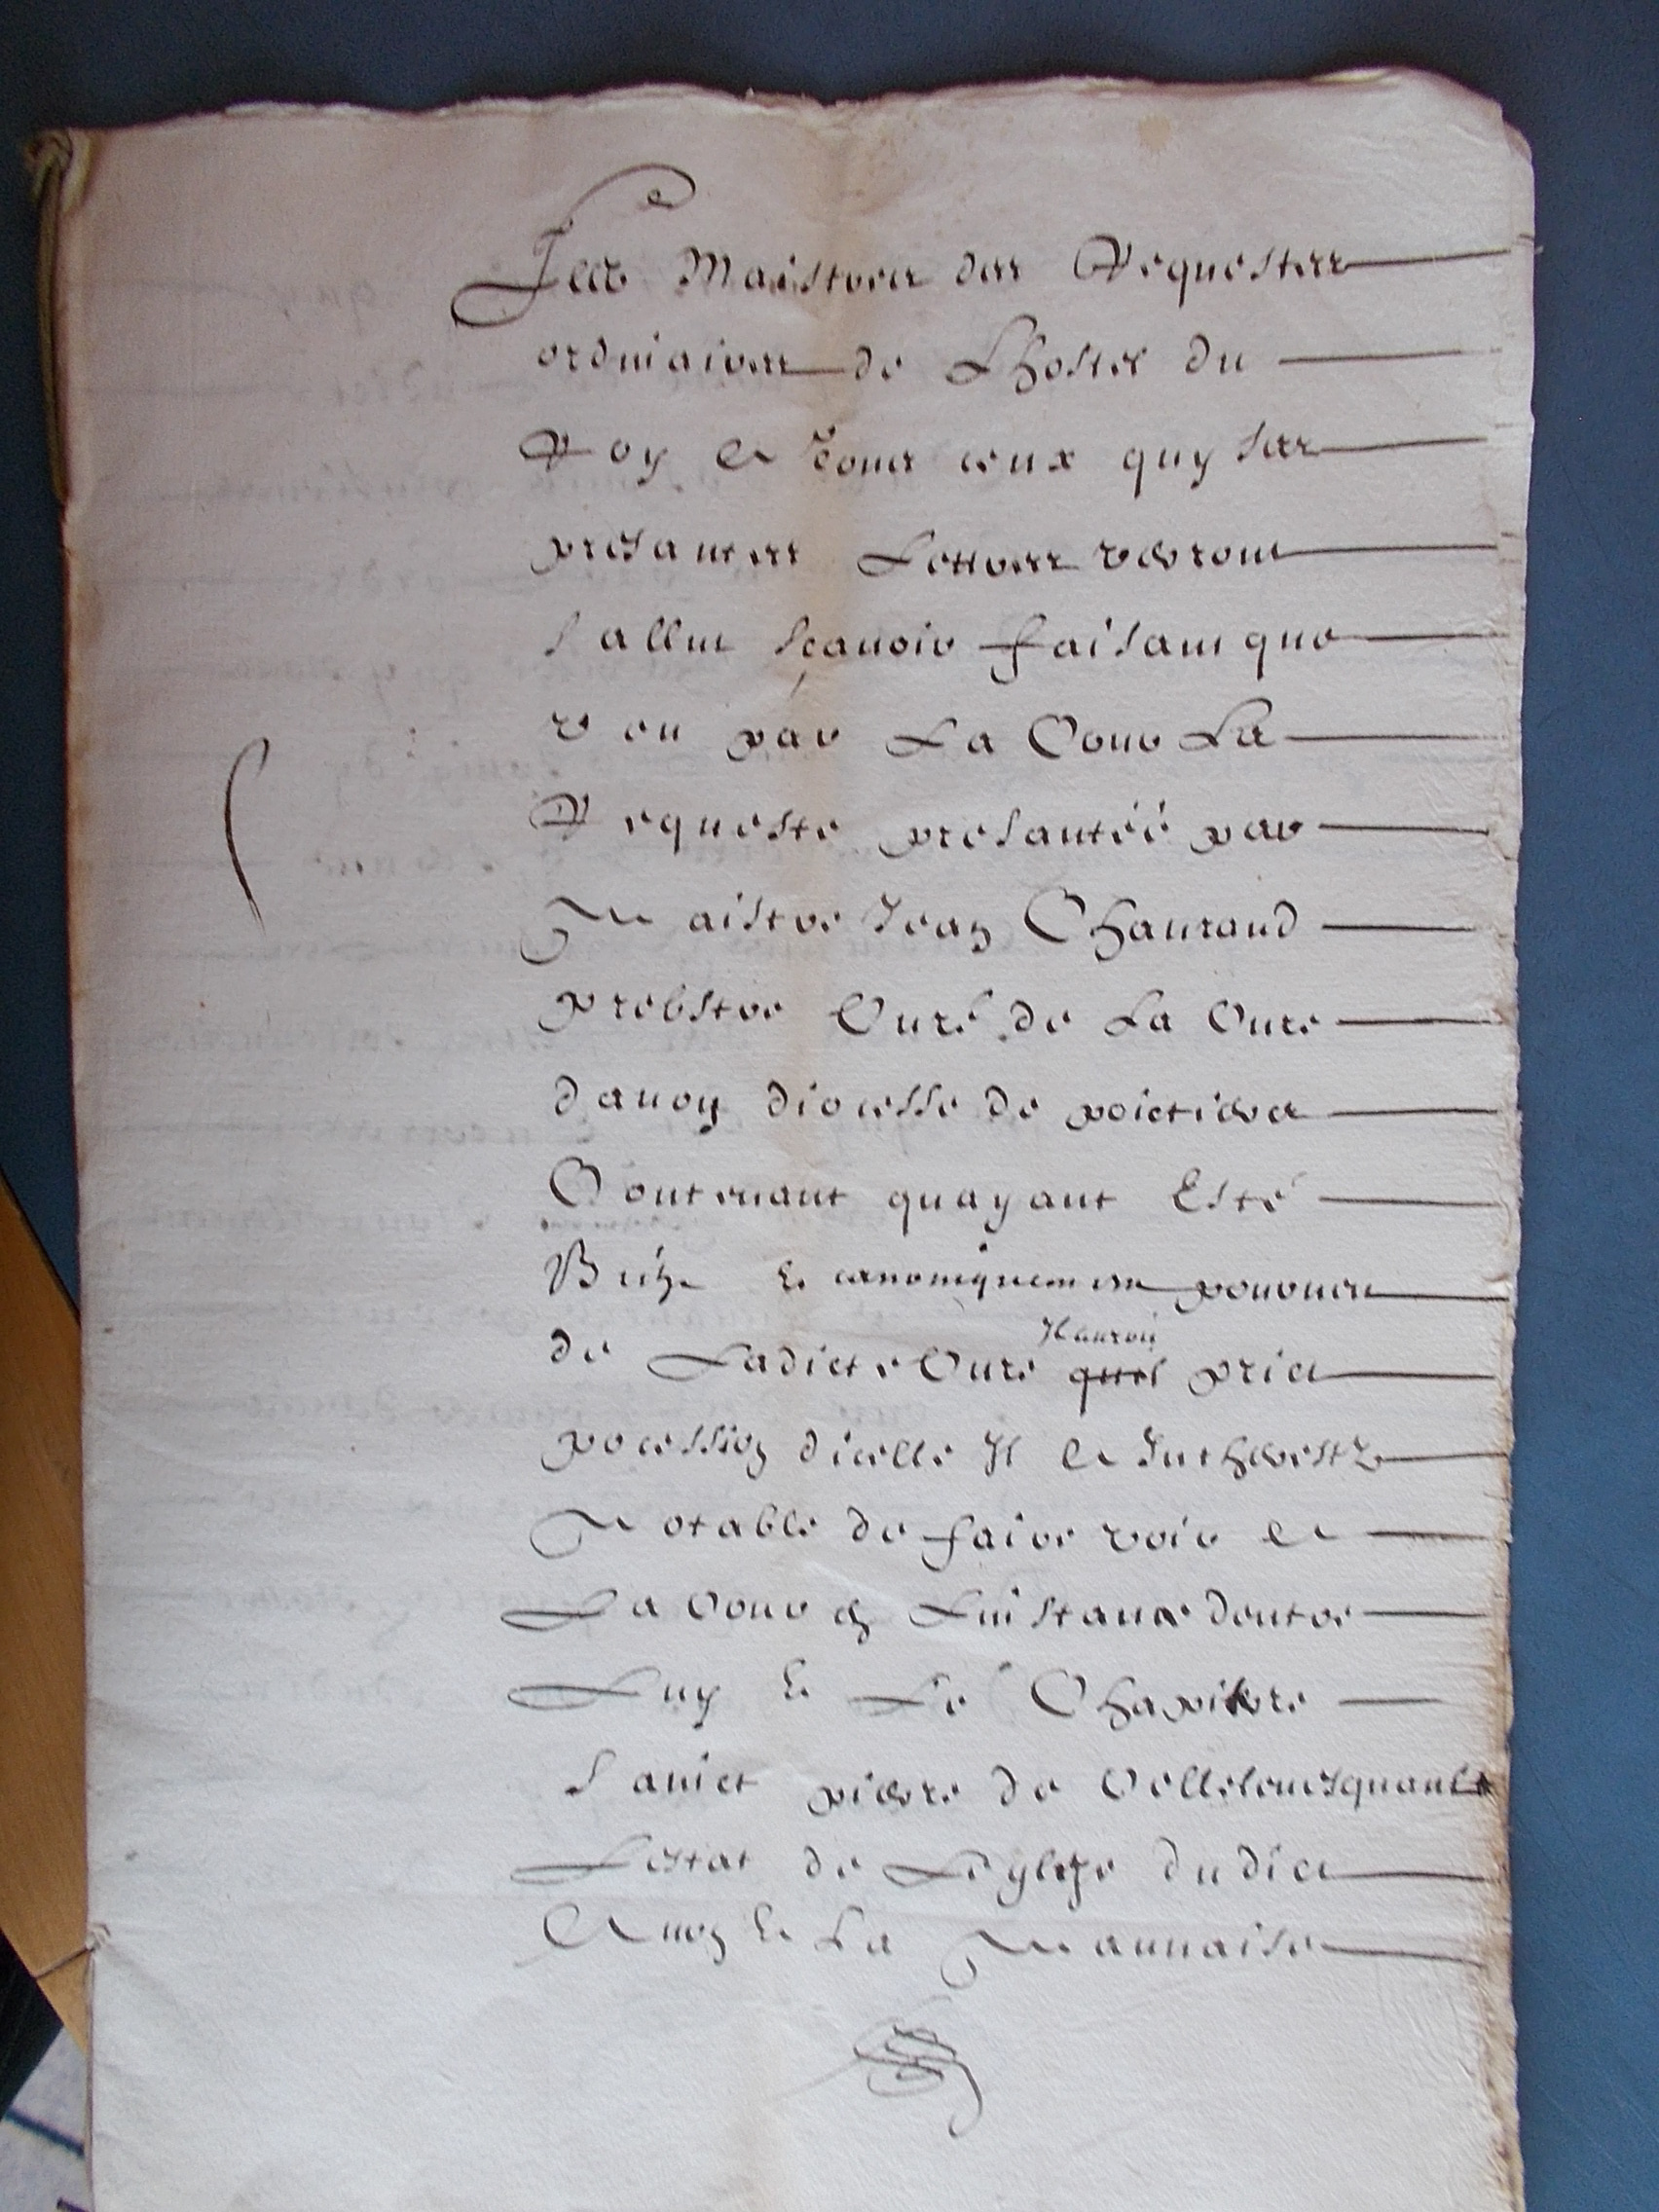 Les Maistres des Requestes
ordinaires de Lhostel du
Roy A tous ceux quy ses
presantes Lettres verront
sallut scauoir faisant que
veu par La Cour La
Requeste presantée par
Maistre Jean Chauraud
prebstre Curé de La Cure
danoy diocesse de poictiers
Contenant quayant Esté
Bien & canoniquement pourueu
de Ladicte Cure Il auroit pris
pocession dicelle Il A Interestz
Notable de faire voir A
La Cour en Linstance dentre
Luy & Le Chapittre
Sainct pierre de
Lestat de Leglize dudict
Anoy & La Mauuaise